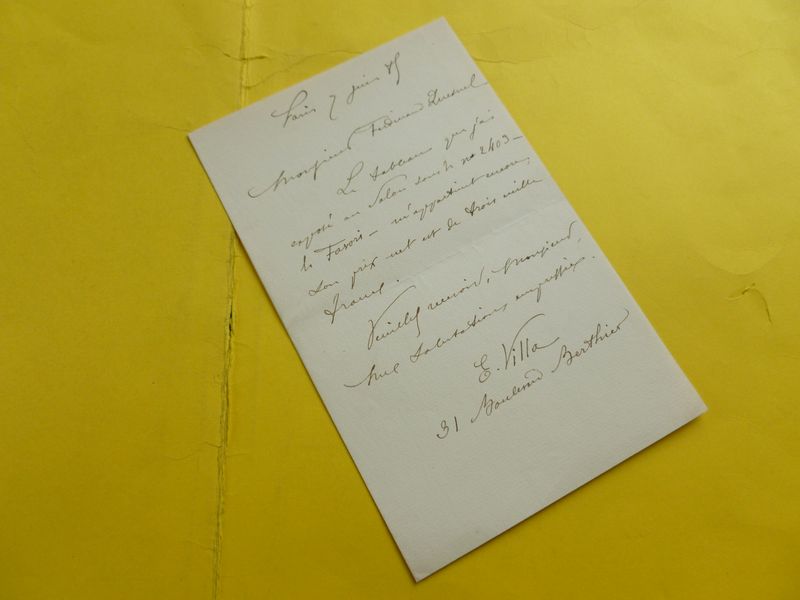 Paris 7 juin 85
Monsieur Ferdinand Duesnel
Le tableau que j'ai
exposé au Salon sous le no 2403 –
le Favori – m'appartient encore,
son prix net est de trois mille
francs.
Veuillez recevoir, Monsieur,
mes salutations empressées.
E. Villa
31 Boulevard Berthier